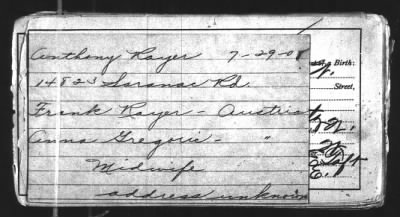 Anthony Rayer 7-29-08
14823 Saranac Rd.
Frank Rayer - Austria
Anna Gregorie - "
Midwife
address unknown
Birth:
Street,